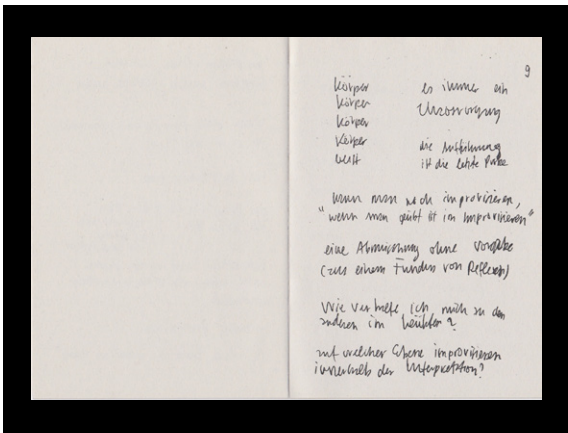 9
Körper es immer ein
Körper
Körper
Körper die Aufführung
ist die letzte Probe
kann man noch improvisieren,
"wenn man geübt ist im Improvisieren"
eine ohne Vorgabe
(aus einem Fundus von Reflexen)
Wie verhalte ich mich zu den
anderen im
auf welcher Ebene improvisieren
innerhalb der Interpretation?